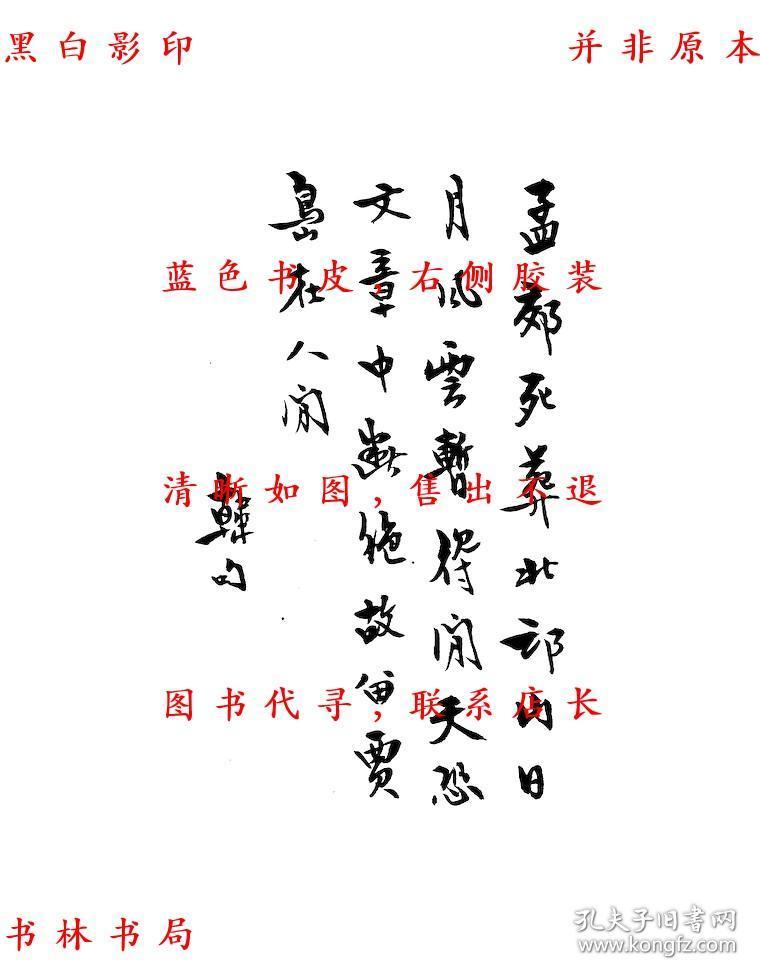 黑白影印
并非原本
孟郊死葬北邙山日
月風雲暫得閒天恐
文章中斷絕故留賈
島在人間
韓句
蓝色书皮，右侧胶装
清晰如图，售出不退
图书代寻，联系店长
书林书局
孔夫子旧书网
www.kongfz.com